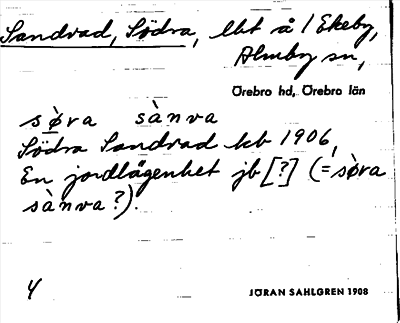 Sandvad, Södra, lbt å 1 Ekeby,
Almby sn,
Örebro hd, Örebro län
sø̀va sànva
Södra Sandvad kb 1906,
En jordlägenhet jb [?] (= sø̀va
sànva?).
4
JÖRAN SAHLGREN 1908